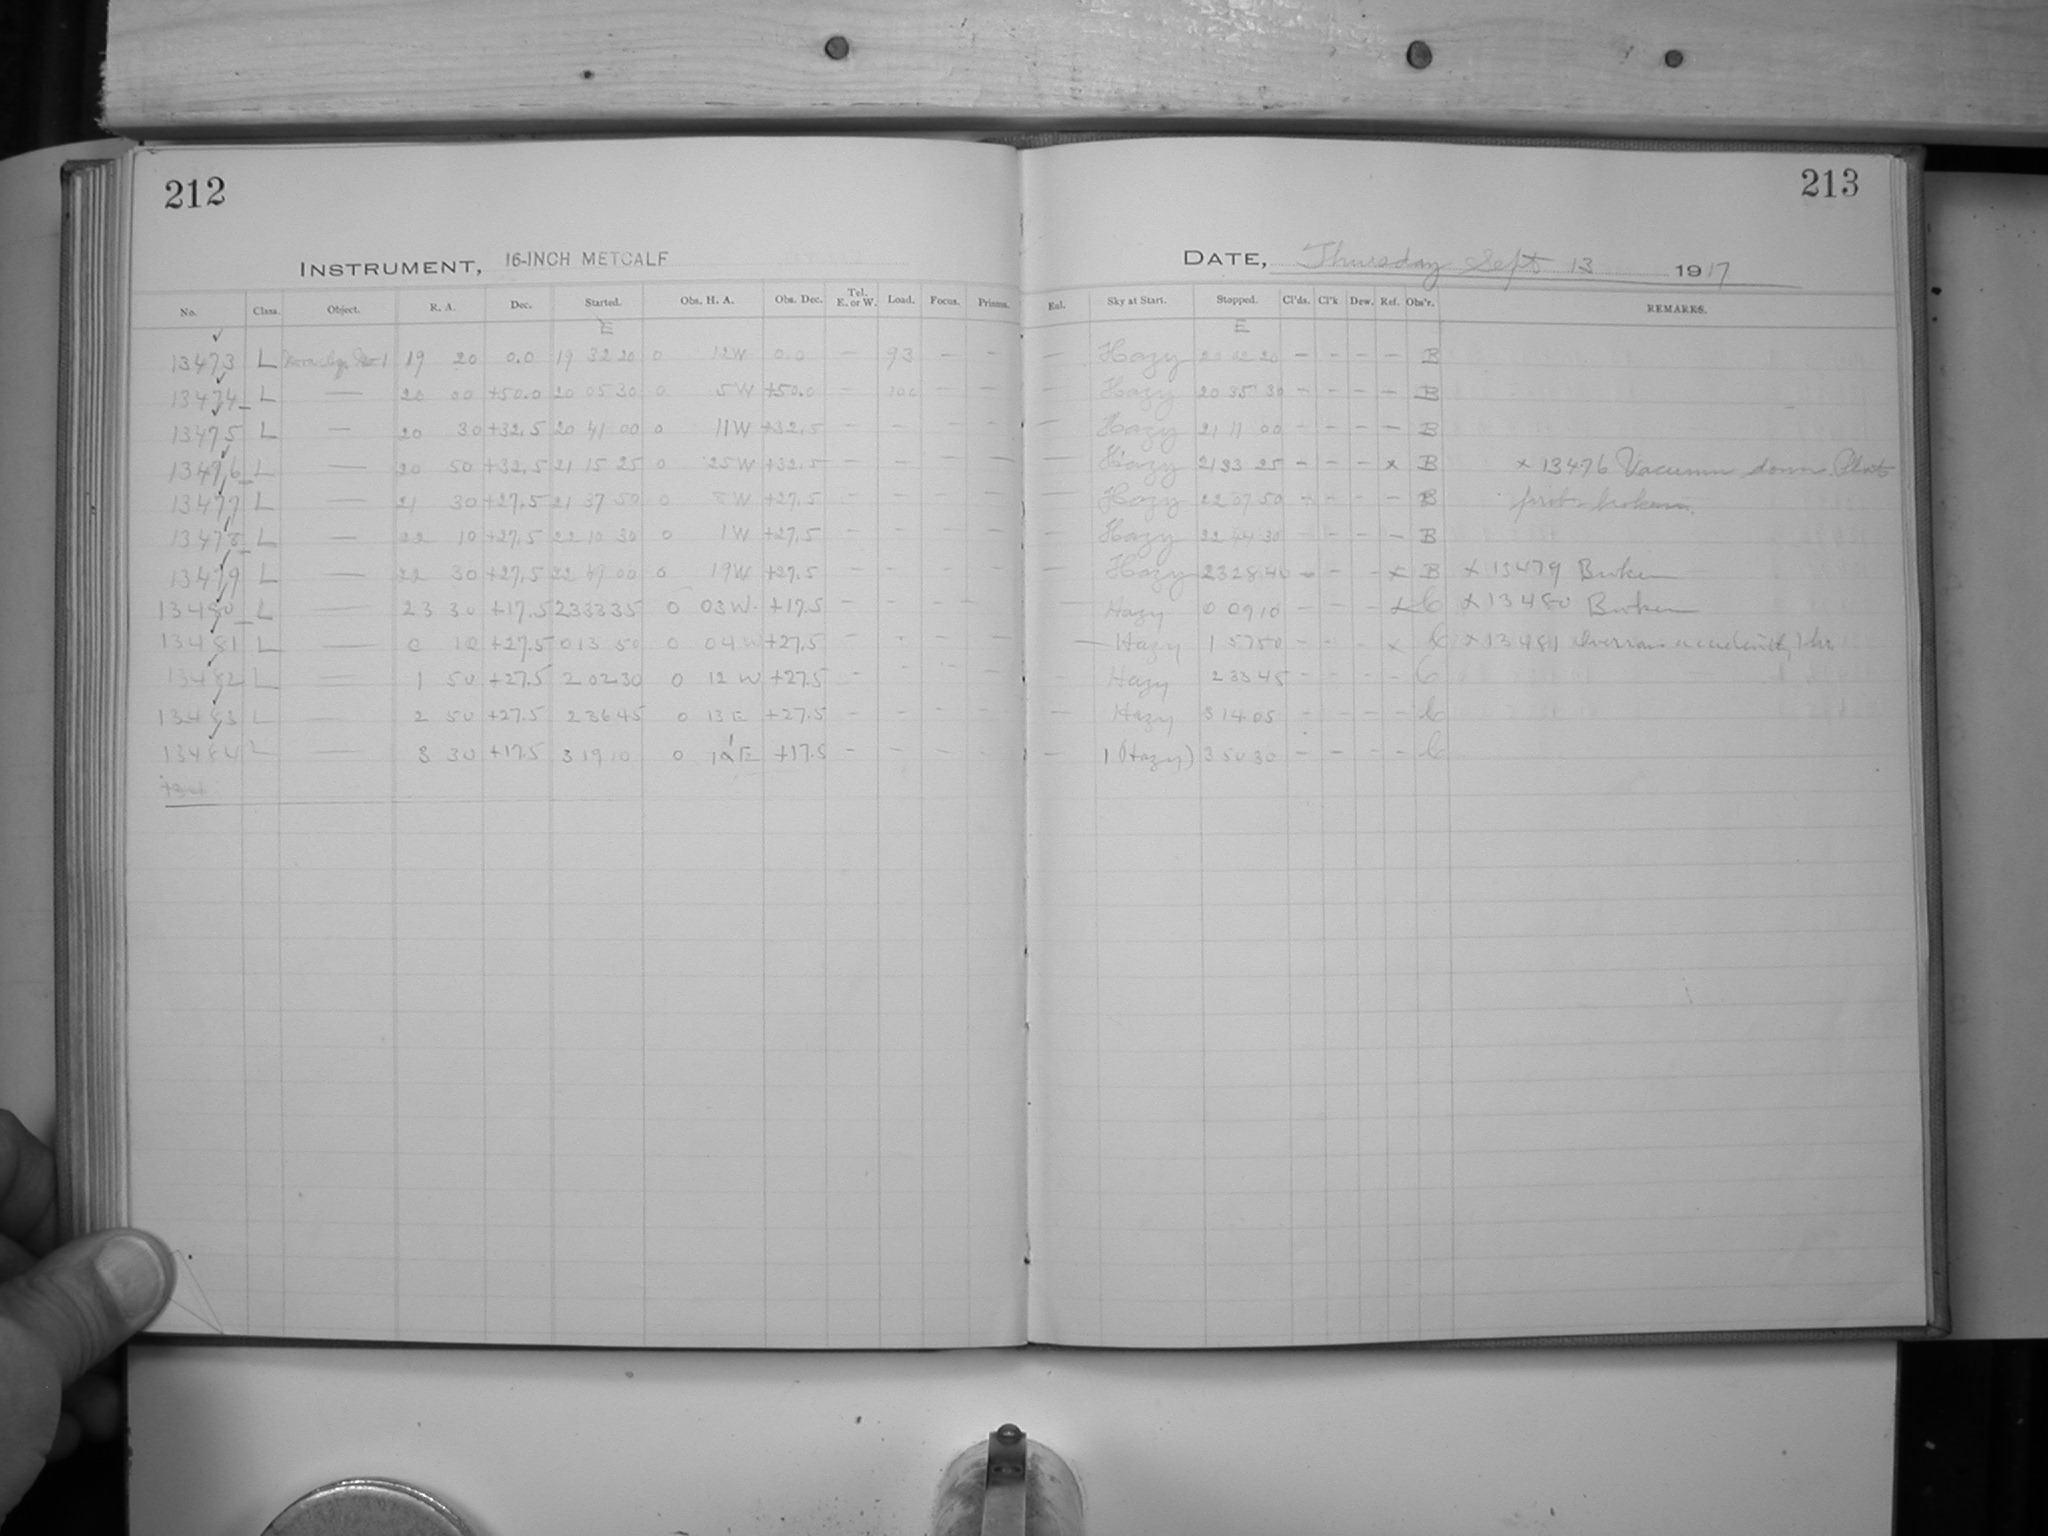 212
213
INSTRUMENT, 16-INCH METCALF
DATE, Thursday Sept 13 1917
No. Class. Object. R. A. Dec. Started. Obs. H. A. Obs. Dec. Tel. E. or W. Load. Focus. Prisms. Eul. Sky at Start. Stopped. Cl'ds. Cl'k Dew. Ref. Obs'r. REMARKS.
E E
13473 L 19 20 0.0 19 32 20 0 12W 0.0 — 93 — — — Hazy 20 02 20 — — — — B
13474 L — 20 00 +50.0 20 05 30 0 5W +50.0 — — — — Hazy 20 35 30 — — — — B
13475 L — 20 30 +32.5 20 41 00 0 11W +32.5 — — — — — Hazy 21 11 00 — — — — B
13476 L — 20 50 +32.5 21 15 25 0 25W +32.5 — — — — — Hazy 21 33 25 — — — x B x 13476 Vacuum down. Plate
13477 L — 21 30 +27.5 21 37 50 0 8W +27.5 — — — — — Hazy 22 07 50 — — — — B prob. broken.
13478 L — 22 10 +27.5 22 10 30 0 1W +27.5 — — — — — Hazy 22 44 30 — — — — B
13479 L — 22 30 +27.5 22 49 00 0 19W +27.5 — — — — — Hazy 23 28 40 — — — x B x 13479 Broken
13480 L — 23 30 +17.5 23 33 35 0 03W +17.5 — — — — — Hazy 0 09 10 — — — x C x 13480 Broken
13481 L — 0 10 +27.5 0 13 50 0 04W +27.5 — — — — — Hazy 1 57 50 — — — x C x 13481 Overran accidently 1 hr.
13482 L — 1 50 +27.5 2 02 30 0 12 W +27.5 — — — — — Hazy 2 33 45 — — — — C
13483 L — 2 50 +27.5 2 36 45 0 13 E +27.5 — — — — — Hazy 3 14 05 — — — — C
13484 L — 3 30 +17.5 3 19 10 0 11 E +17.5 — — — — — 1 (Hazy) 3 50 30 — — — — C